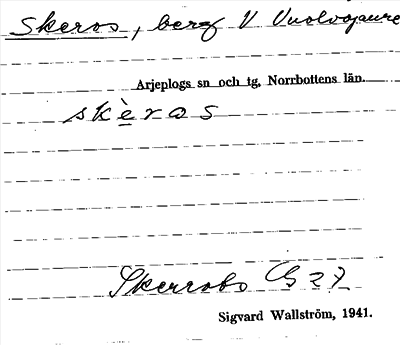 Skeros, berg V Vuolvojaure
Arjeplogs sn och tg, Norrbottens län.
skèras
Skerrobo G 27
Sigvard Wallström, 1941.